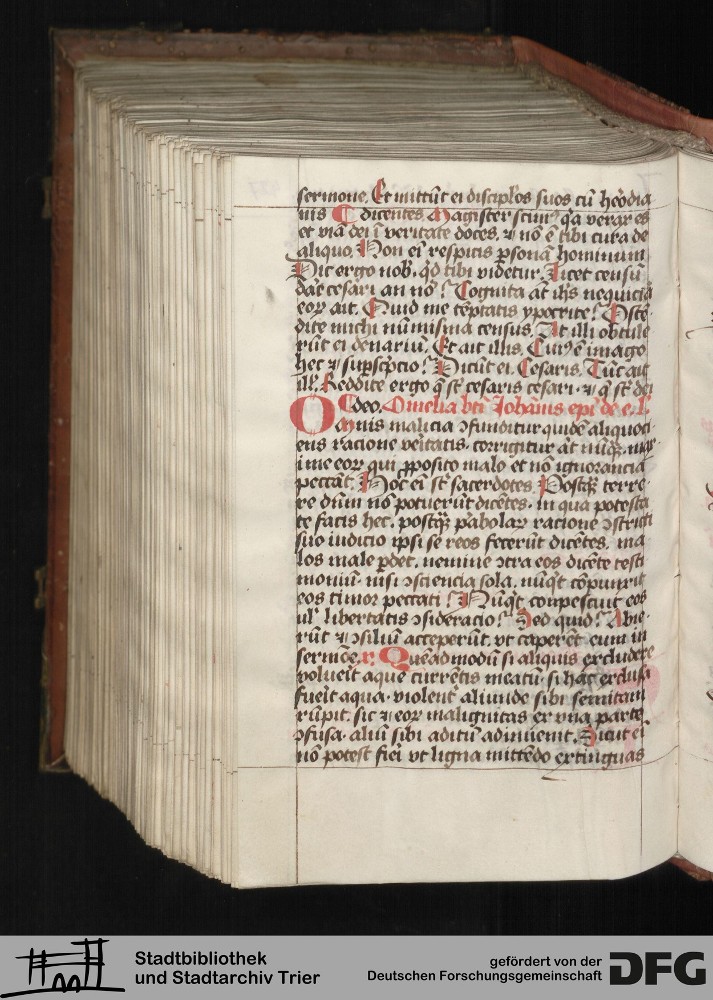 sermone. Et mittūt ei disciplōs suos cū hēodia
nis Dicentes. Magister scimꝰ qa verax es
et viā dei ī veritate doces. ⁊ nō ē tibi cura de
aliquo. Non eī respicis psonā hominum
Dic ergo nob. qd tibi videtur. Licet censū
dare cesari an nō? Cognita āt ihs nequicia
eorꝝ ait. Quid me tēptatis ypocrite? Oste
dite michi numisma census. At illi obtule
rūt ei denariū. Et ait illis. Cuiꝰ ē imago
hec ⁊ supscpcio? Dicūt ei. Cesaris. Tūc ait
ill'. Reddite ergo q̄ st cesaris cesari. ⁊ q̄ st dei
deo. Omelia bti Johānis epi de e. l.
Omnis malicia ɔfunditur quidē aliquoci
ens racione veritatis. corrigitur āt nūq̄.
ī me eorꝝ qui pposito malo et nō ignorancia
peccāt. Hoc eī st sacerdotes. Postq̄ terre
re dnm nō potuerūt dicētes. in qua potesta
te facis hec. postq̄ pabolaꝝ racione ɔstricti
suo iudicio ipsi se reos fecerūt dicētes. ma
los male pdet. nemine ɔtra eos dicēte testi
moniū. nisi ɔsciencia sola. nūqt cōpunxit
eos timor peccati? Nūqt conpescuit eos
ul' libertatis ɔsideracio? Sed quid? Abie
rūt ⁊ ɔsiliū acceperūt. vt caperēt eum in
sermōe. r. Quēadmodū si aliquis excludere
voluēit aque currētis meatū. si hac exclusa
fuēit aqua. violent' aliunde sibi semitam
rūpit. sic ⁊ eorꝝ malignitas ex vna parte
ɔfusa. aliū sibi aditū adinuenit. Sicut eī
nō potest fieī vt ligna mittēdo extinguas
Stadtbibliothek
und Stadtarchiv Trier
gefördert von der
Deutschen Forschungsgemeinschaft
DFG